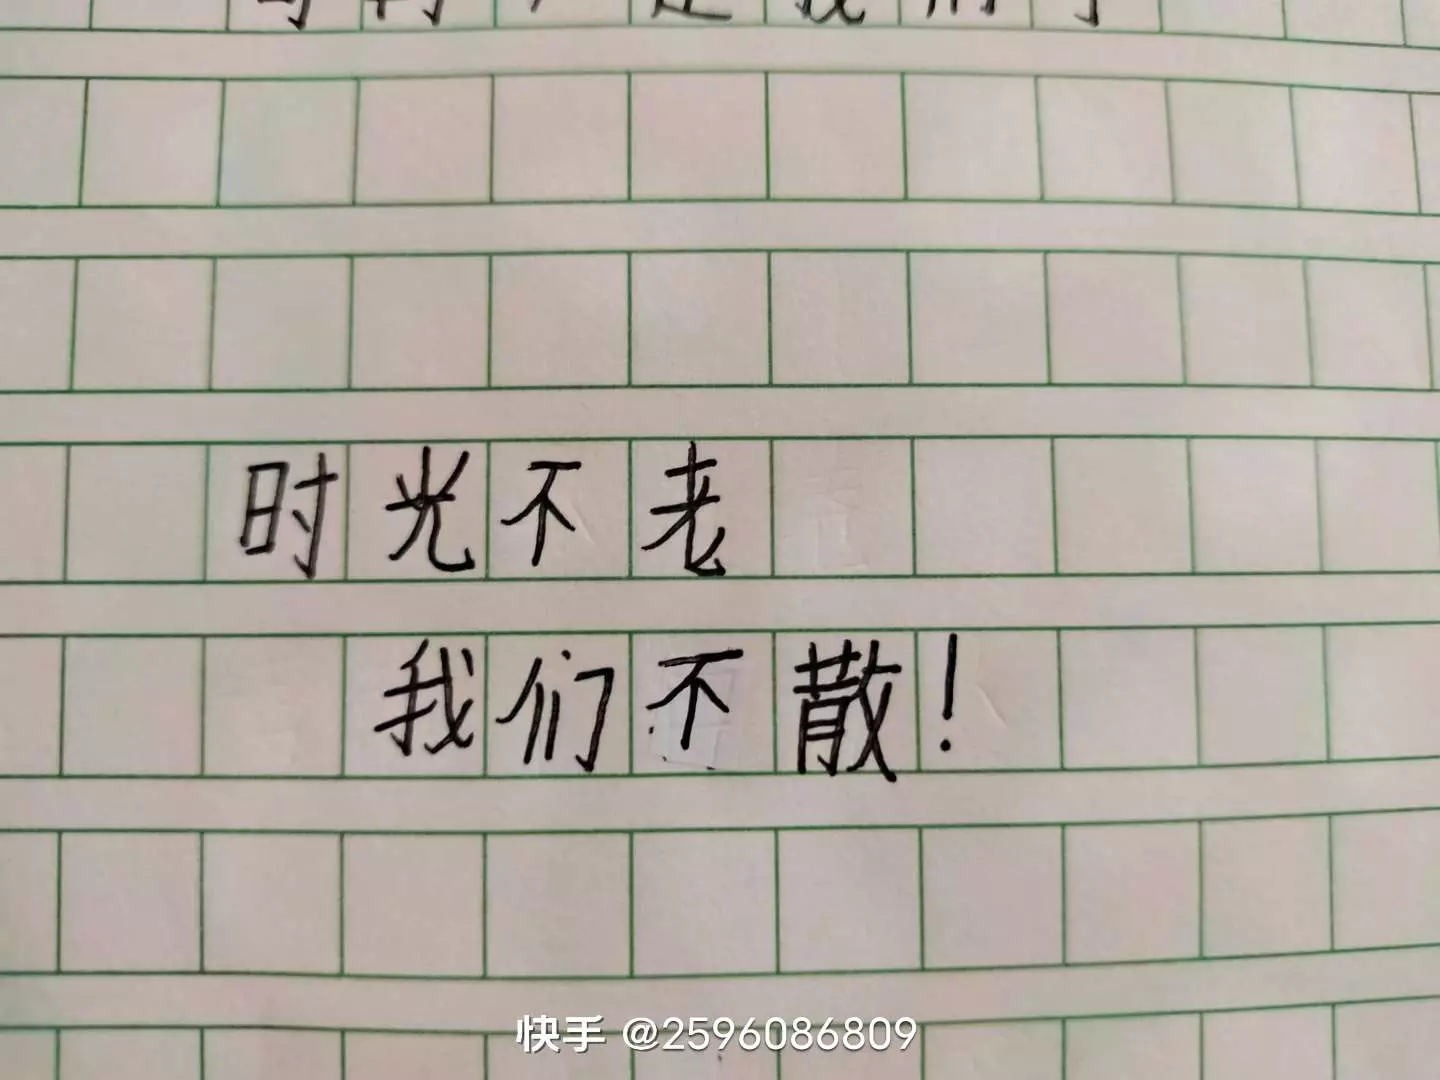 是我们
时光不老
我们不散！
快手 @2596086809